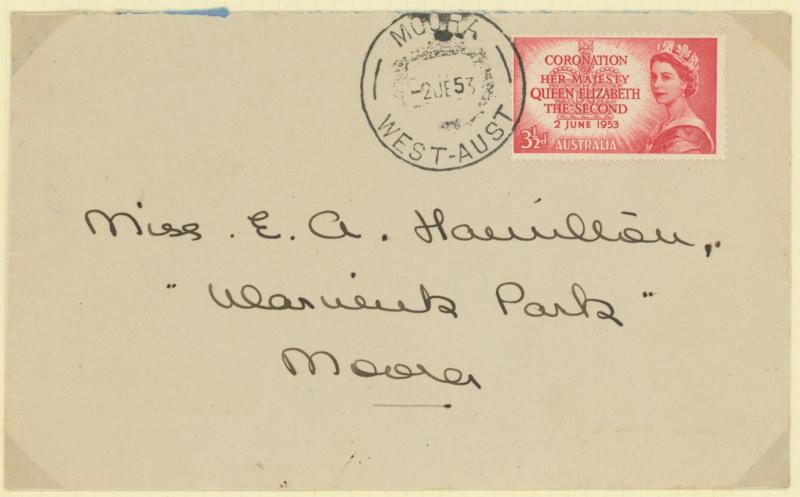 MOORA
-2JE53
WEST-AUST
CORONATION
OF
HER·MAJESTY
QUEEN ELIZABETH
THE·SECOND
2 JUNE 1953
3½d AUSTRALIA
Miss. E. A. Hamilton,
" Park"
Moora